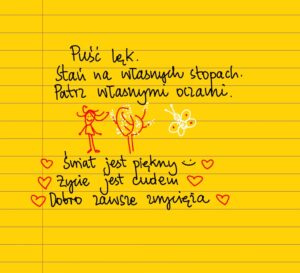 Puść lęk.
Stań na własnych stopach.
Patrz własnymi oczami.
Świat jest piękny
Życie jest cudem
Dobro zawsze zwycięża